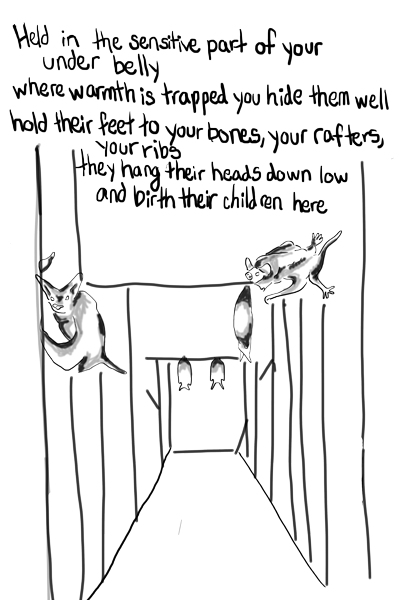 Held in the sensitive part of your
under belly
where warmth is trapped you hide them well
hold their feet to your bones, your rafters,
your ribs
they hang their heads down low
and birth their children here